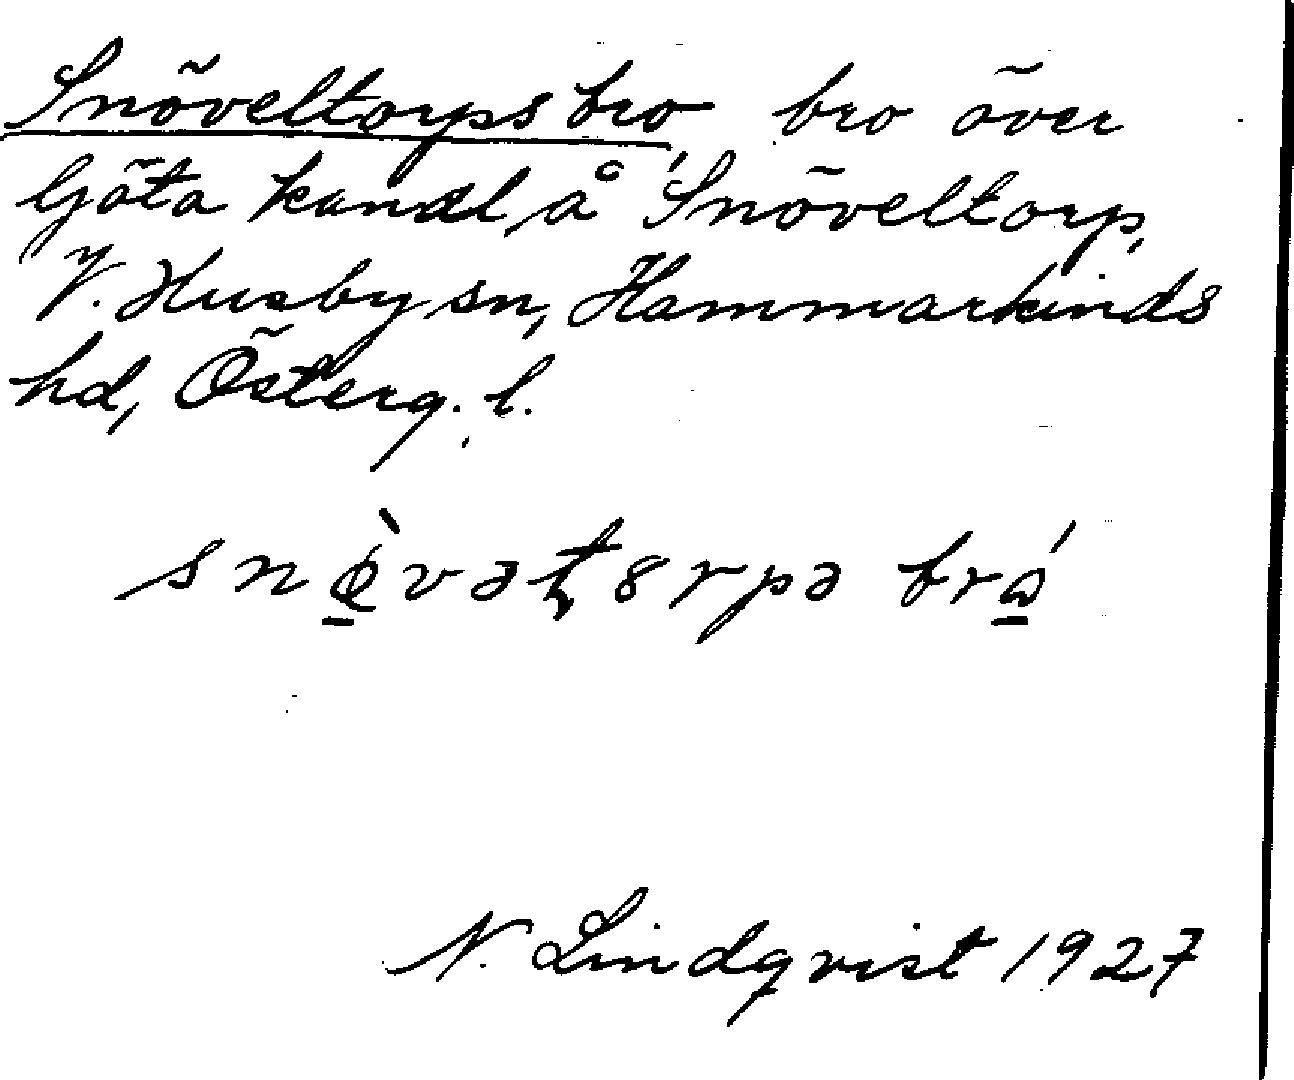 Snöveltorps bro, bro över
Göta kanal, å Snöveltorp,
V. Husby sn, Hammarkinds
hd, Österg. l.
snø̀vəʈ8rpə bró
N. Lindqvist 1927